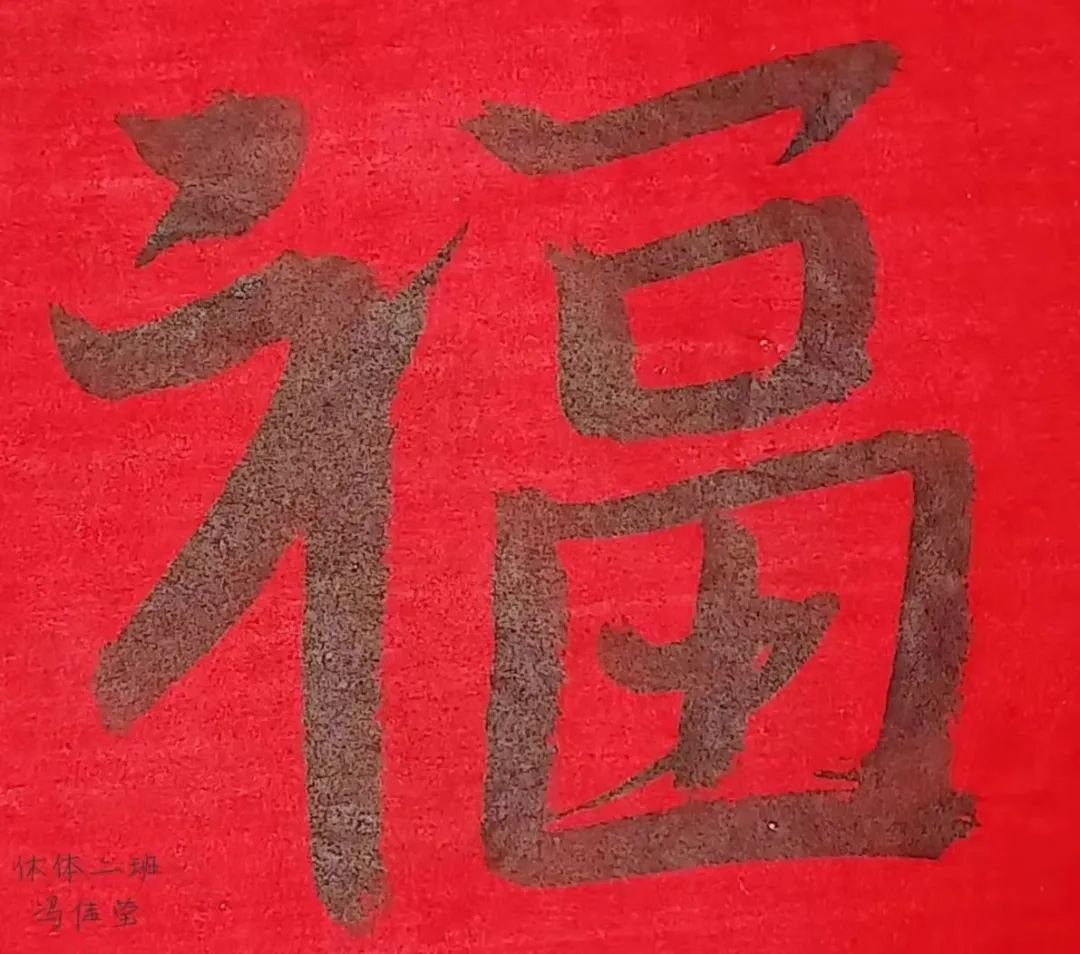 福
休体二班
冯佳莹